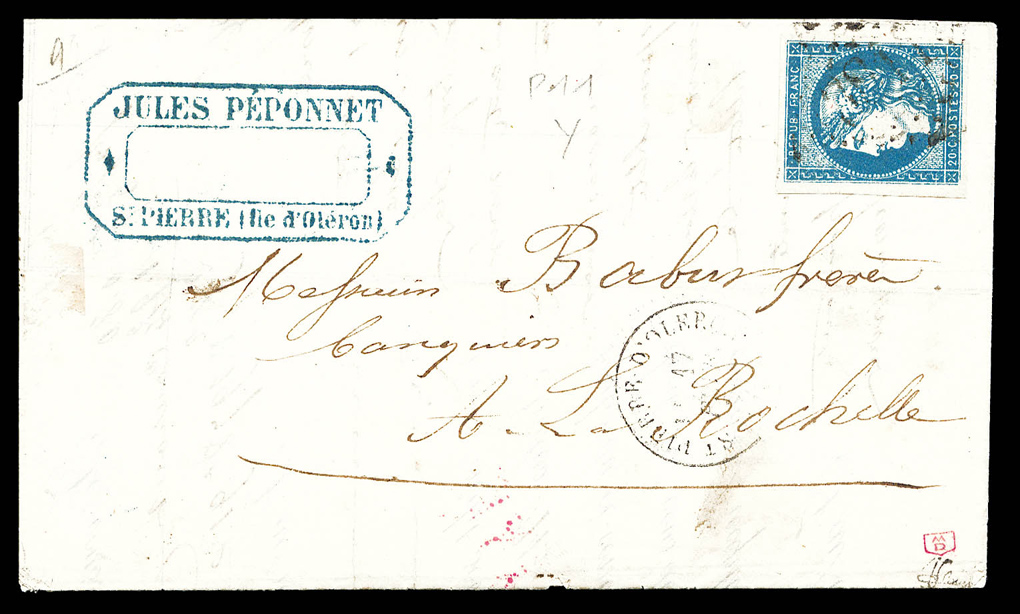 9
JULES PÉPONNET
St. PIERRE (Ile d'Oléron)
P11
Y
REPUB. FRANC.
20·C·POSTES·20·C
Messieurs Babus frères.
banquiers
A La Rochelle
ST PIERRE D'OLERON
17
MD